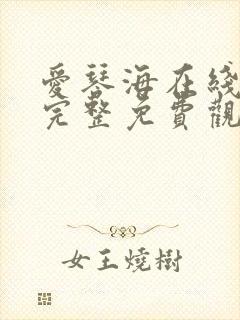 愛琴海在綫
完整免費觀
女王燒樹